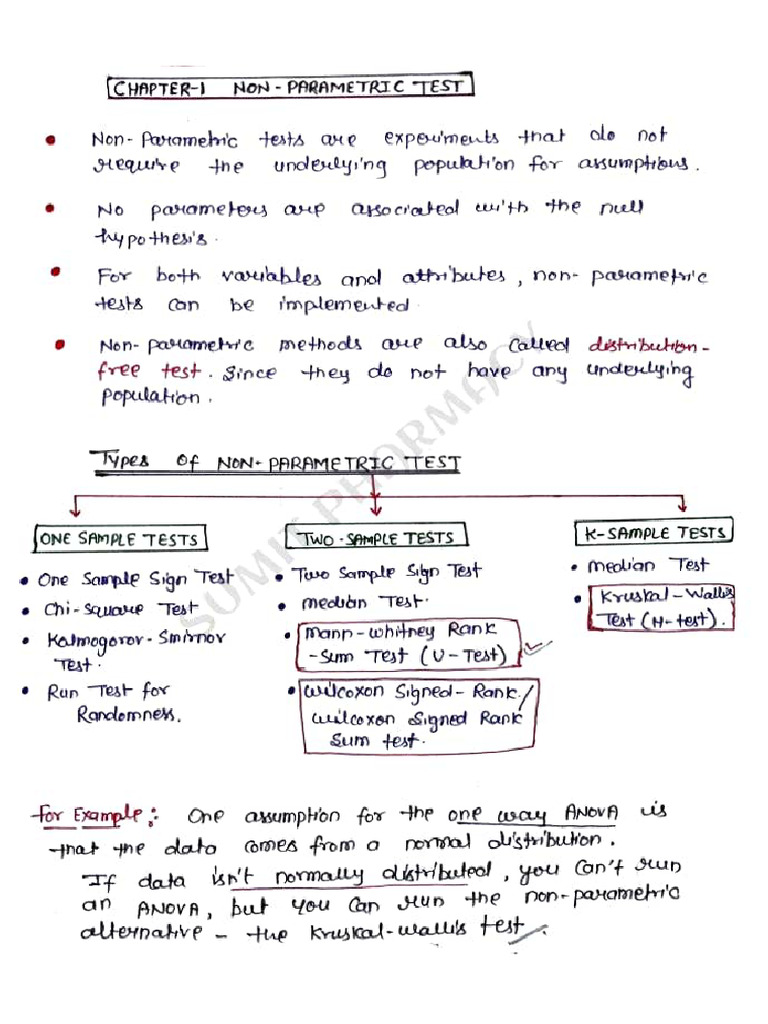 CHAPTER-1 NON-PARAMETRIC TEST
• Non-Parametric tests are experiments that do not
require the underlying population for assumptions.
• No parameters are associated with the null
hypothesis.
• For both variables and attributes, non-parametric
tests can be implemented.
• Non-parametric methods are also called distribution-
free test. Since they do not have any underlying
population.
SUMIT PHARMACY
Types of NON-PARAMETRIC TEST
ONE SAMPLE TESTS
• One Sample Sign Test
• Chi-Square Test
• Kalmogorov-Smirnov
Test.
• Run Test for
Randomness.
TWO-SAMPLE TESTS
• Two Sample Sign Test
• median Test.
• Mann-whitney Rank
-Sum Test (U-Test)
• Wilcoxon Signed-Rank/
Wilcoxon Signed Rank
Sum test.
K-SAMPLE TESTS
• median Test
• Kruskal-Wallis
Test (H-test).
For Example:- One assumption for the one way ANOVA is
that the data comes from a normal distribution.
If data isn't normally distributed, you can't run
an ANOVA, but you can run the non-parametric
alternative - the Kruskal-wallis test.